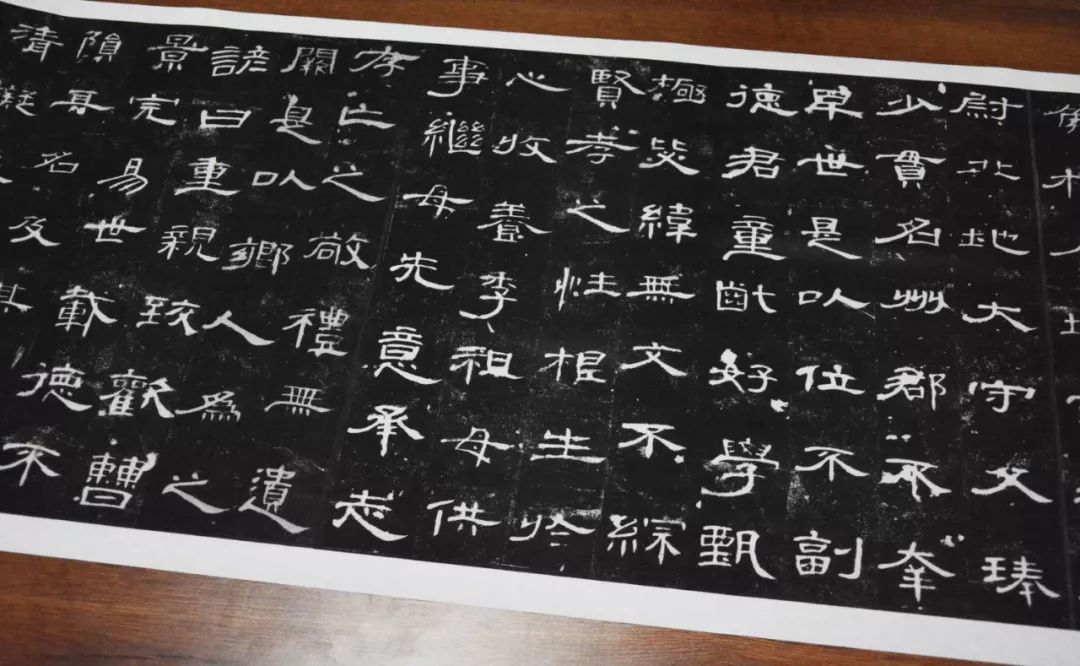 侯相
尉北地大守父琫
少貫名州郡不幸
早世是以位不副
德君童齔好學甄
極毖緯無文不綜
賢孝之性根生於
心收養季祖母供
事繼母先意承志
存亡之敬禮無遺
闕是以鄉人為之
諺曰重親致歡曹
景完易世載德不
隕其名及其
清擬